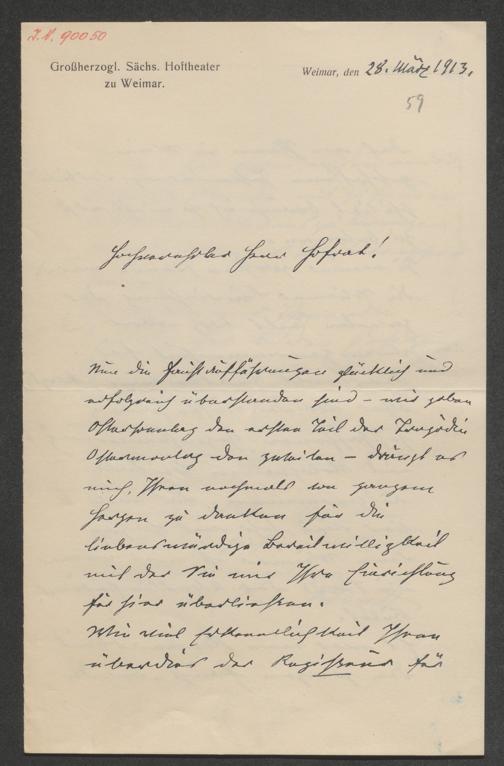 J.N. 90050
Großherzogl. Sächs. Hoftheater
zu Weimar.
Weimar, den 28. März 1913.
59
Hochverehrter Herr Hofrat!
Nun die Faustaufführungen glücklich und
erfolgreich überstanden sind – wir gaben
Ostersonntag den ersten Teil der Tragödie
Ostermontag den zweiten – drängt es
mich, Ihnen nochmals von ganzem
Herzen zu danken für die
liebenswürdige Bereitwilligkeit
mit der Sie mir Ihre Einrichtung
für hier überliessen.
Wie viel Erkenntlichkeit Ihnen
überdies der Regisseur für